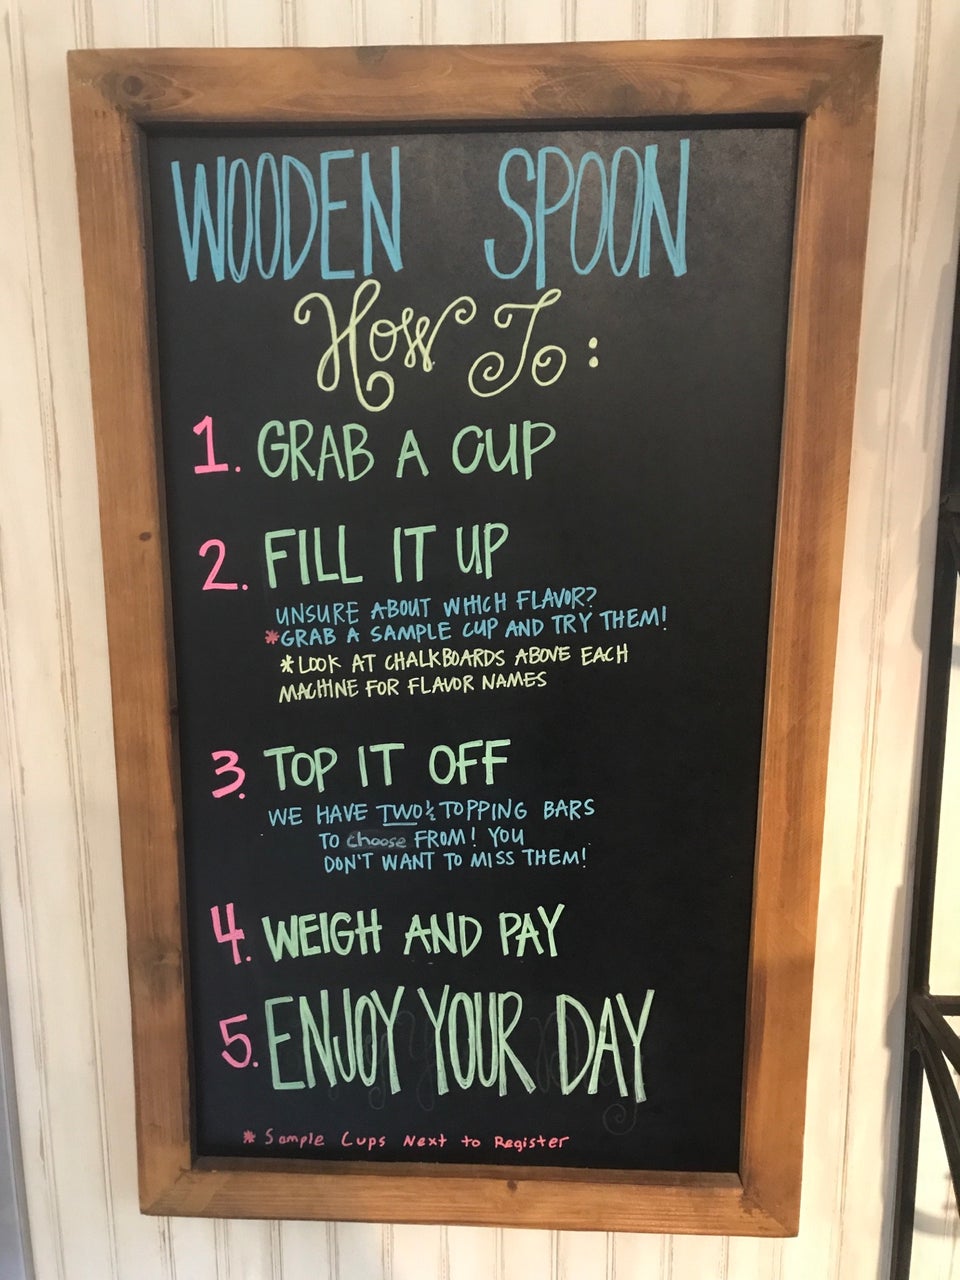 WOODEN SPOON
How To:
1. GRAB A CUP
2. FILL IT UP
UNSURE ABOUT WHICH FLAVOR?
*GRAB A SAMPLE CUP AND TRY THEM!
*LOOK AT CHALKBOARDS ABOVE EACH
MACHINE FOR FLAVOR NAMES
3. TOP IT OFF
WE HAVE TWO½ TOPPING BARS
TO choose FROM! YOU
DON'T WANT TO MISS THEM!
4. WEIGH AND PAY
5. ENJOY YOUR DAY
* Sample Cups Next to Register